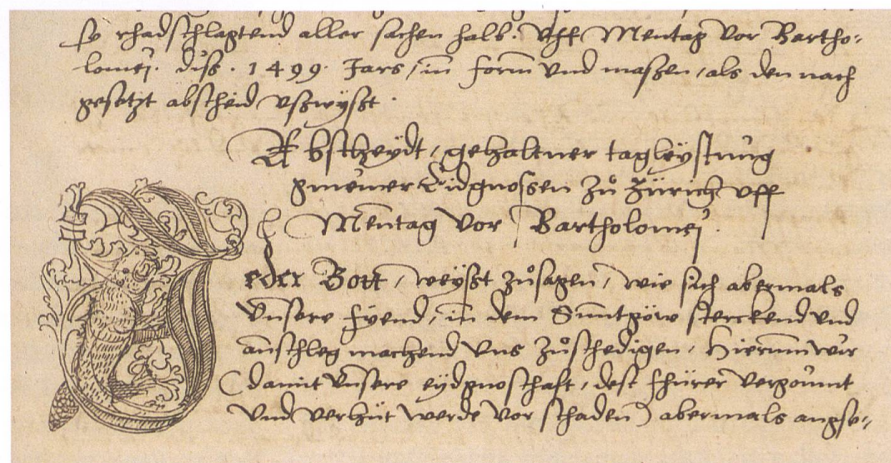 so rhadschlagtend aller sachen halb. Uff Mentag vor Bartho-
lomej. diß. 1499. Jars, in form und maßen, als den nach
gesetzt abscheid ußwyßt.
Abscheydt, gehaltner tagleystung
gmeiner Eidgnossen Zů Zürich uff
Mentag vor Bartholomej.
Jeder Bott, weyßt zůsagen, wie sich abermals
Unsere fyend, in dem Suntgöw sterckend und
anschleg machend uns zůschedigen, Hierum wir
(damit unsere eydgnoschaft, dest
und verhüt werde vor schaden) abermals angse-